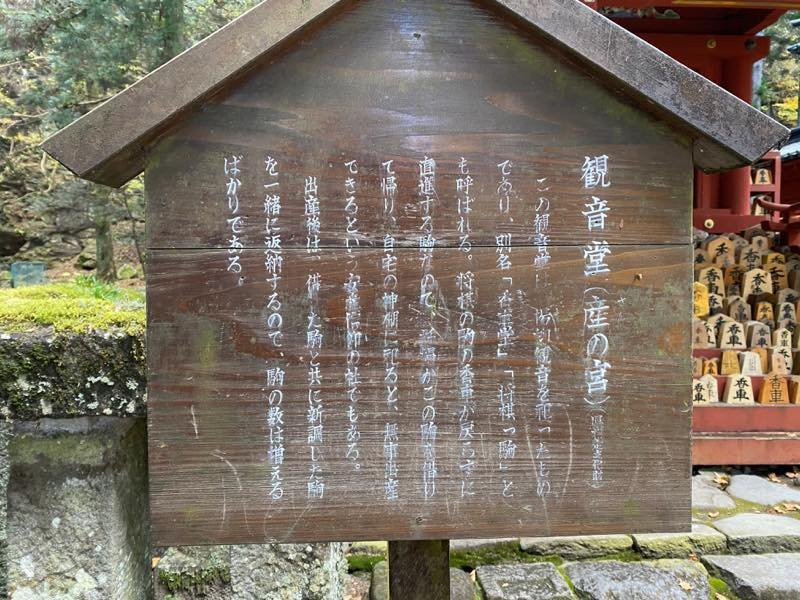 観音堂(産の宮)
この観音堂は、 観音を祀ったもの
であり、別名「香車堂」、「将棋の駒」と
も呼ばれる。将棋の駒の香車が戻らずに
直進する駒なので、 がこの駒を借り
て帰り、自宅の神棚に祀ると、無事出産
できるという安産信仰の社でもある。
出産後は、借りた駒と共に新調した駒
を一緒に返納するので、駒の数は増える
ばかりである。
香車
香車
香車
香車
香車
香車
香車